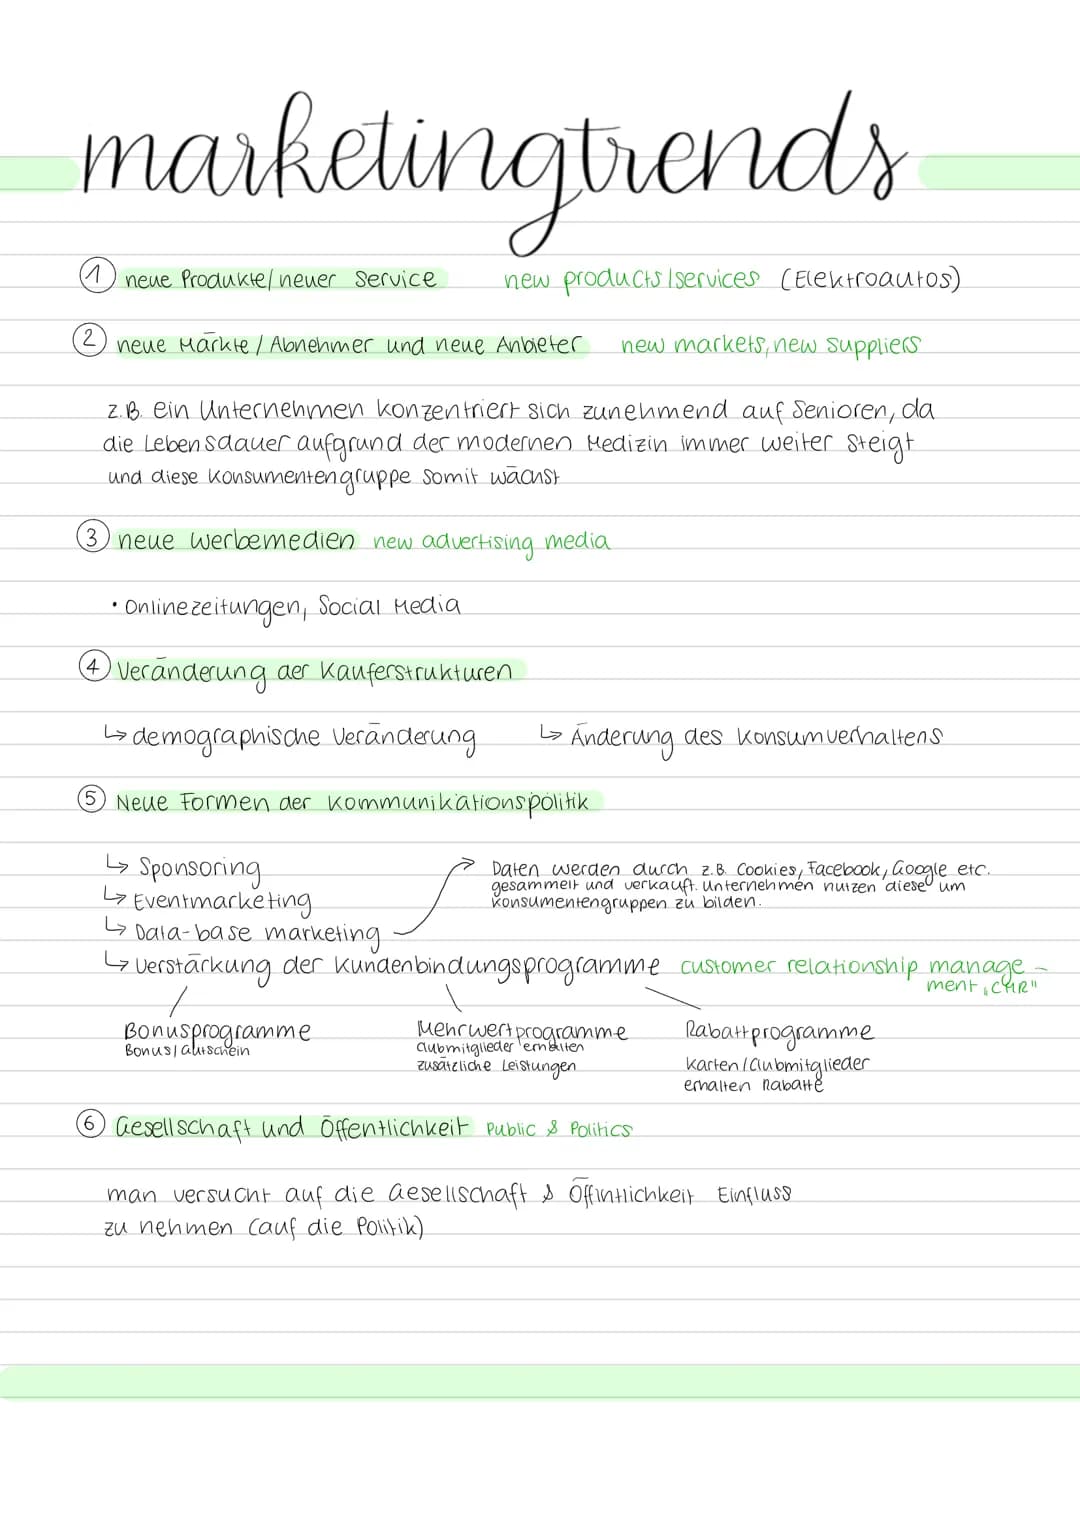 marketingtrends
1 neue Produkte/neuer Service new products/services (Elektroautos)
2 neue Märkte / Abnehmer und neue Anbieter new markets, new suppliers
z.B. ein Unternehmen konzentriert sich zunehmend auf Senioren, da
die Lebensdauer aufgrund der modernen Medizin immer weiter steigt
und diese Konsumentengruppe somit wächst
3 neue Werbemedien new advertising media
• Onlinezeitungen, Social Media
4 Veränderung der Käuferstrukturen
↳ demographische Veränderung ↳ Änderung des Konsumverhaltens
5 Neue Formen der Kommunikationspolitik
↳ Sponsoring
↳ Eventmarketing
↳ Data-base marketing
Daten werden durch z.B. Cookies, Facebook, Google etc.
gesammelt und verkauft. Unternehmen nutzen diese um
Konsumentengruppen zu bilden.
↳ Verstärkung der Kundenbindungsprogramme customer relationship manage-
ment „CMR"
Bonusprogramme
Bonus/Gutschein
Mehrwertprogramme
Clubmitglieder erhalten
zusätzliche Leistungen
Rabattprogramme
Karten/Clubmitglieder
erhalten Rabatte
6 Gesellschaft und Öffentlichkeit Public & Politics
man versucht auf die Gesellschaft & Öffintlichkeit Einfluss
zu nehmen (auf die Politik)